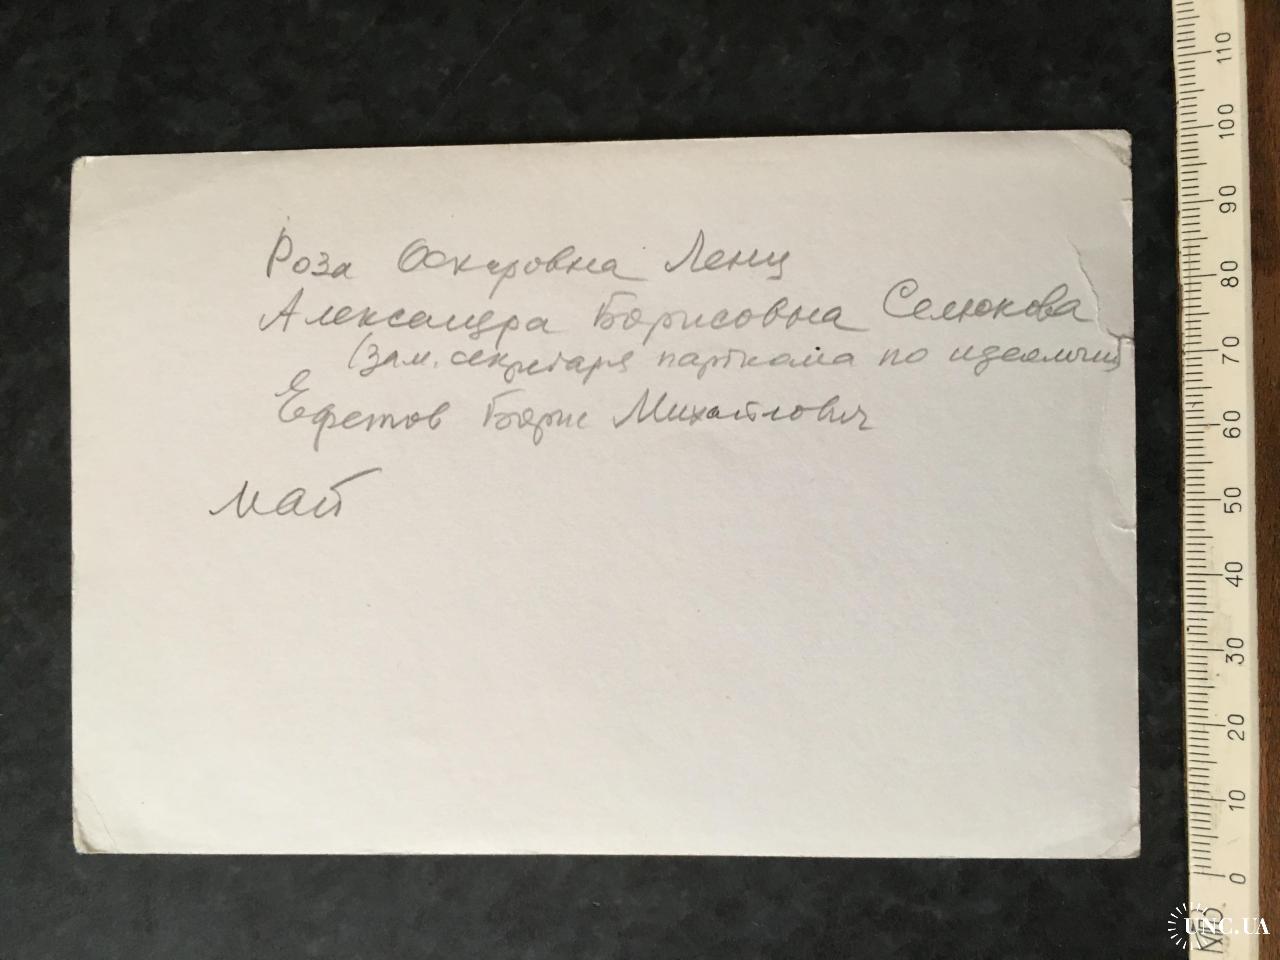 Роза Оскаровна Ленц
Александра Борисовна Селюкова
(зам. секретаря парткома по идеологии)
Ефетов Борис Михайлович
май
110
100
90
80
70
60
50
40
30
20
10
0
UNC.UA